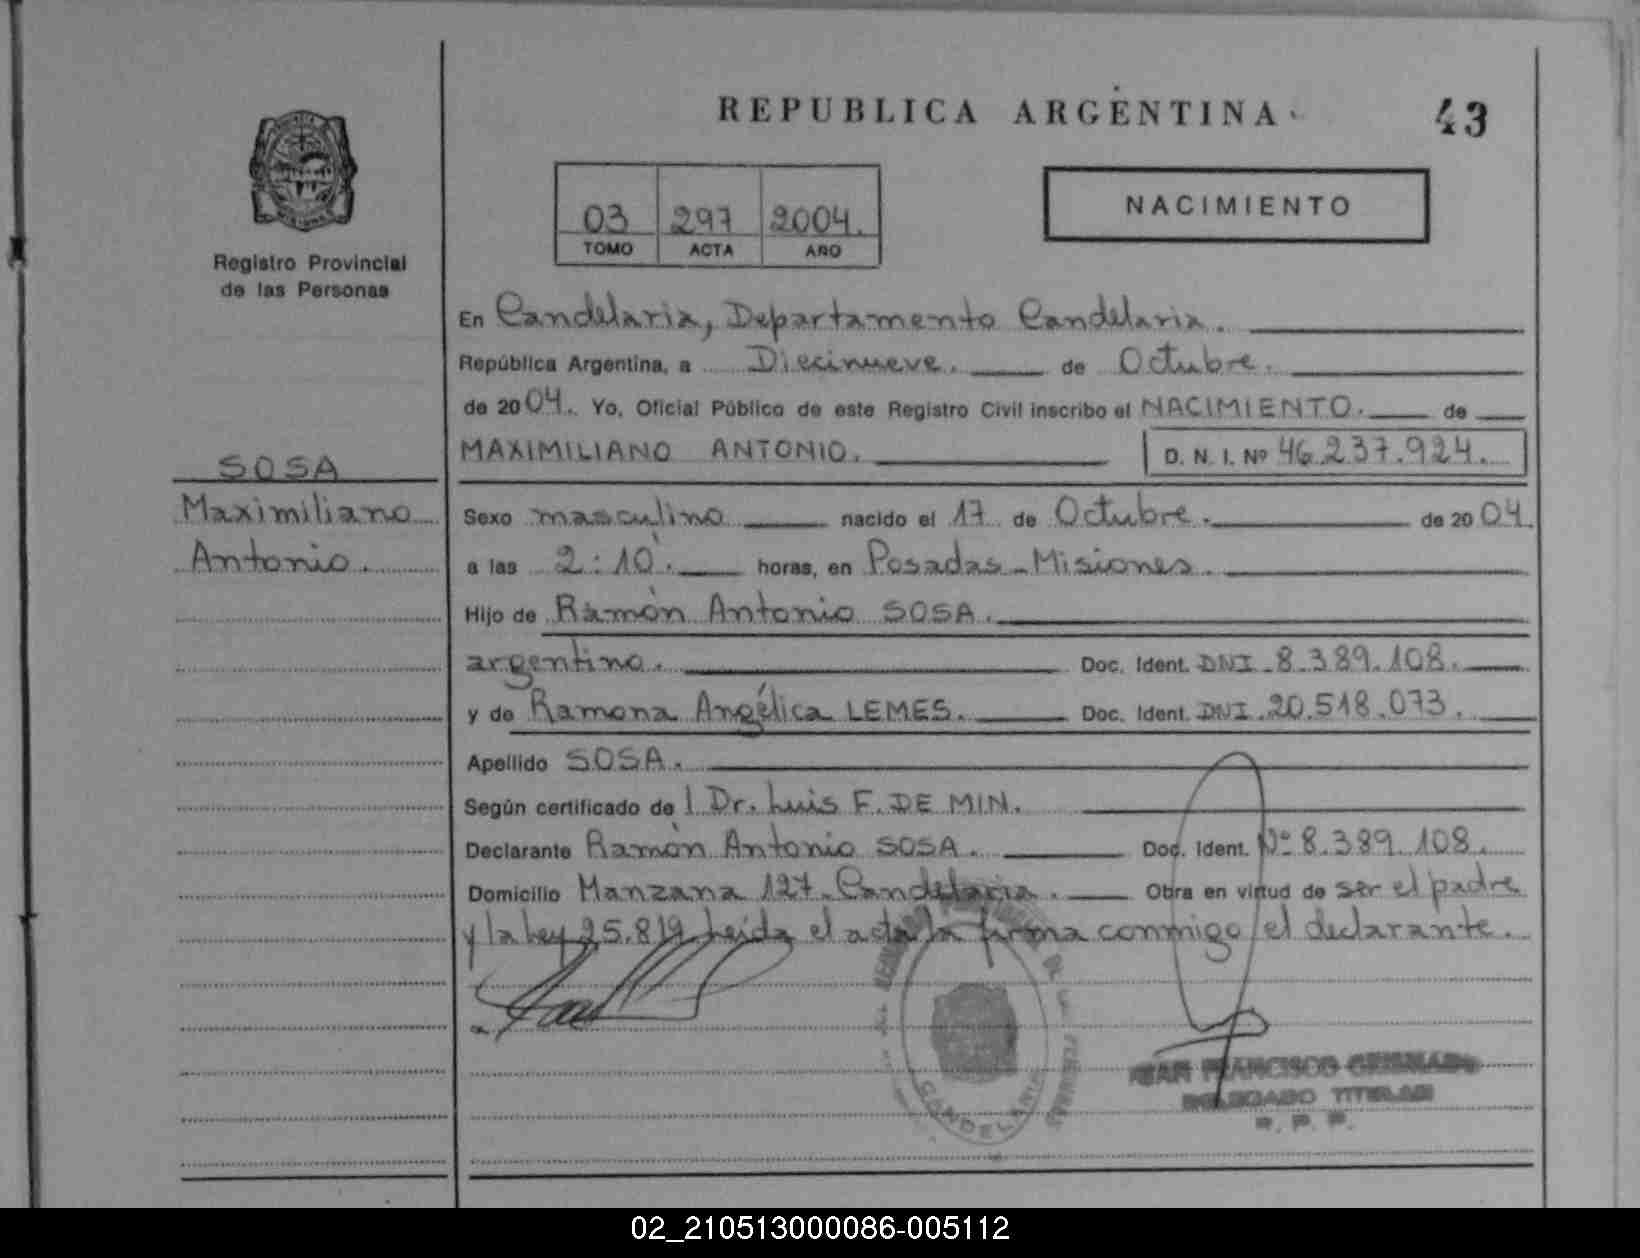 REPUBLICA ARGENTINA
43
03 297 2004.
TOMO ACTA AÑO
NACIMIENTO
Registro Provincial
de las Personas
En Candelaria, Departamento Candelaria.
República Argentina, a Diecinueve. de Octubre.
de 2004. Yo, Oficial Público de este Registro Civil inscribo el NACIMIENTO. de
MAXIMILIANO ANTONIO. D. N. I. Nº 46.237.924.
SOSA
Maximiliano
Antonio.
Sexo masculino nacido el 17 de Octubre. de 2004.
a las 2:10'. horas, en Posadas-Misiones.
Hijo de Ramón Antonio SOSA.
argentino. Doc. Ident. DNI.8.389.108.
y de Ramona Angélica LEMES. Doc. Ident. DNI.20.518.073.
Apellido SOSA.
Según certificado de l Dr. Luis F. DE MIN.
Declarante Ramón Antonio SOSA. Doc. Ident. Nº 8.389.108.
Domicilio Manzana 127-Candelaria. Obra en virtud de ser el padre
y la Ley 25.819 Leída el acta la firma conmigo el declarante.
CANDELARIA
FRANCISCO
DELEGADO TITULAR
R. P. P.
02_210513000086-005112